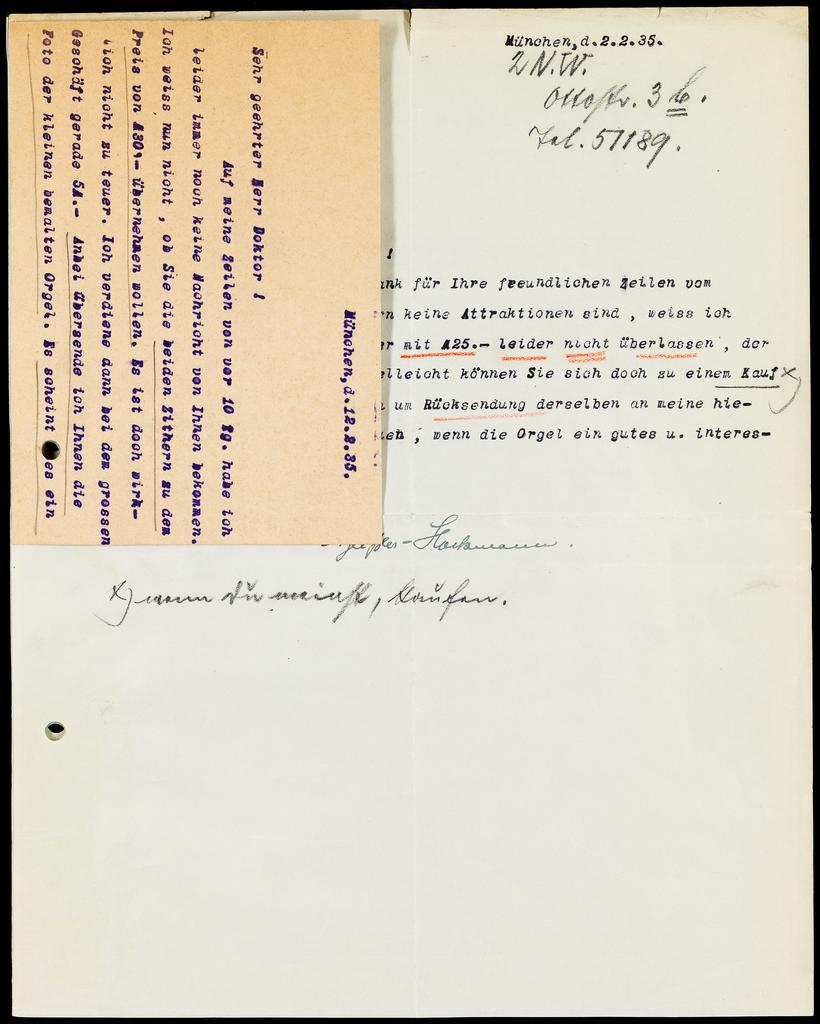 München, d. 2.2.35.
2 N.W.
Ottostr. 3 b.
Tel. 57189.
!
ank für Ihre freundlichen Zeilen vom
rn keine Attraktionen sind , weiss ich
er mit M25.- leider nicht überlassen , der
elleicht können Sie sich doch zu einem Kauf x)
um Rücksendung derselben an meine hie-
ten , wenn die Orgel ein gutes u. interes-
-Hackmann.
x) wenn Du meinst, kaufen.
München, d. 12.2.35.
Sehr geehrter Herr Doktor !
Auf meine Zeilen von vor 10 Tg. habe ich
leider immer noch keine Nachricht von Ihnen bekommen.
Ich weiss nun nicht , ob Sie die beiden Zithern zu dem
Preis von M30.- übernehmen wollen. Es ist doch wirk-
lich nicht zu teuer. Ich verdiene dann bei dem grossen
Geschäft gerade 5M.- Anbei übersende ich Ihnen die
Foto der kleinen bemalten Orgel. Es scheint es ein